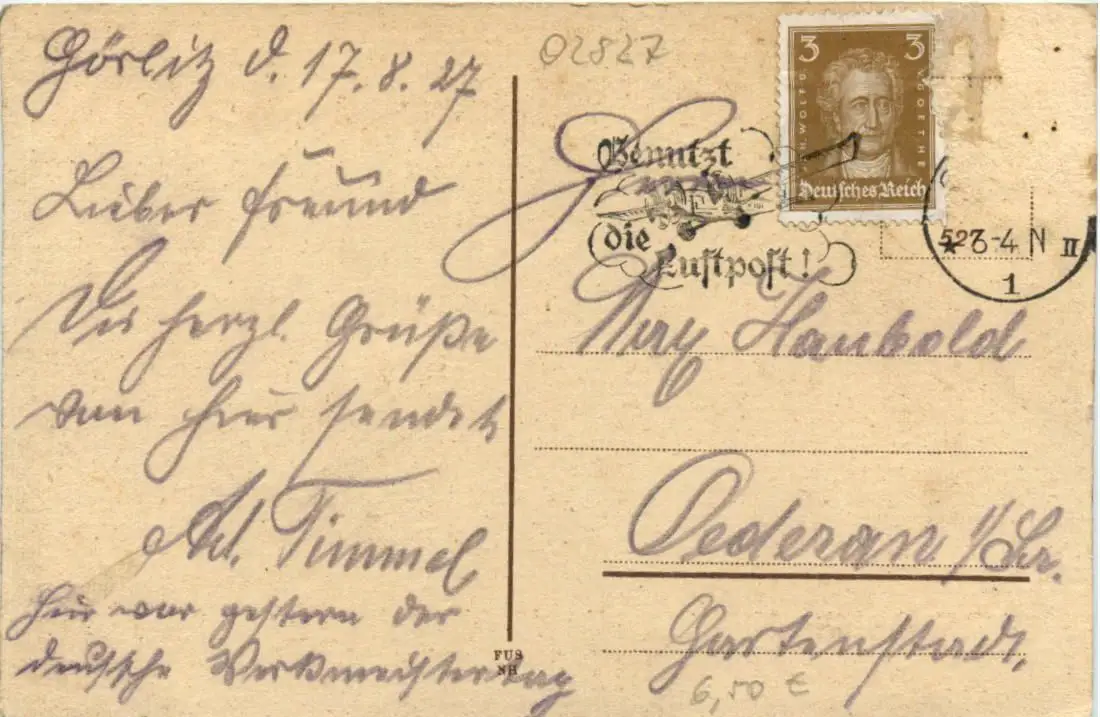 Görlitz d. 17.8.27
Lieber Freund
Die herzl. Grüße
von hier sendet
Ad. Timmel
Hier war gestern der
deutsche Werkmeistertag
02827
3 3
JOH. WOLFG. V. GOETHE
Deutsches Reich
Benutzt
die
Luftpost!
3-4 N
II
1
H
Max Haubold
Oederan i/Sa.
Gartenstadt.
FUS
NH
6,50 €